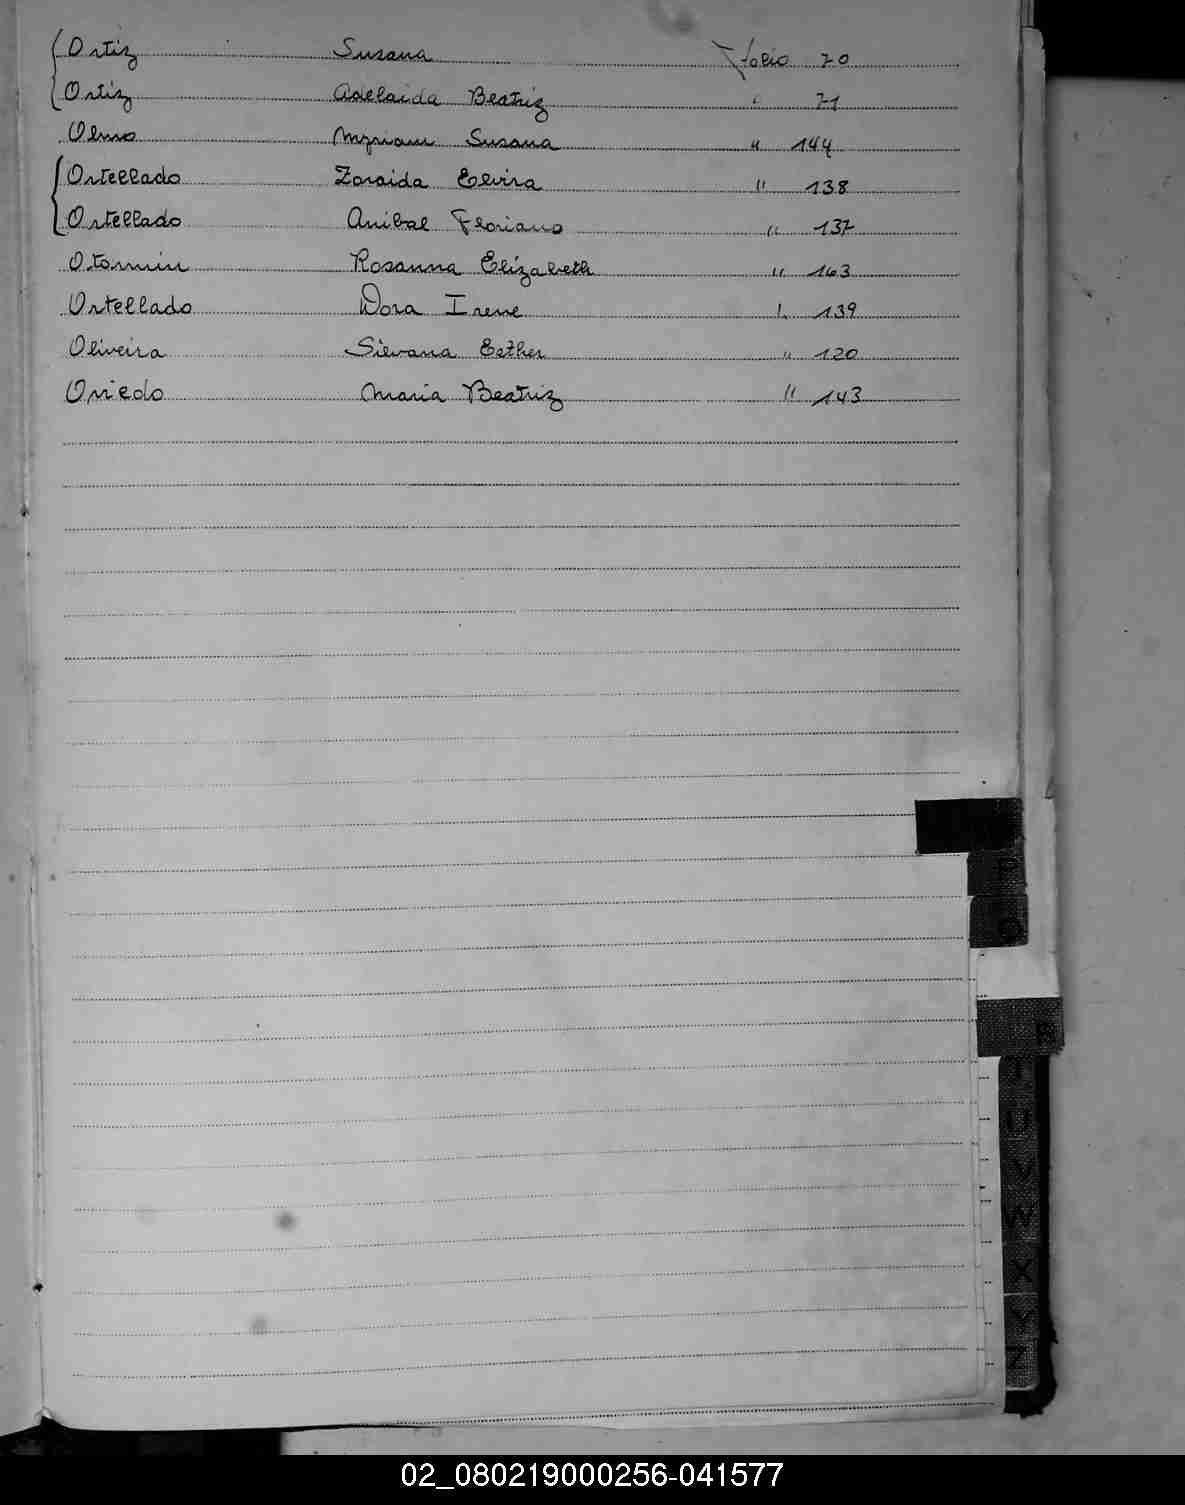 Ortiz Susana folio 70
Ortiz Adelaida Beatriz " 71
Olmo Myriam Susana " 144
Ortellado Zoraida Elvira " 138
Ortellado Anibal Floriano " 137
Otormin Rosanna Elizabeth " 163
Ortellado Dora Irene " 139
Oliveira Silvana Esther " 120
Oviedo Maria Beatriz " 143
P
Q
R
T
U
V
W
X
Y
Z
02_080219000256-041577